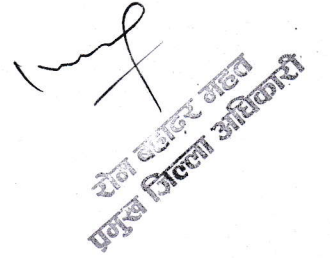 रोम बहादुर महत
प्रमुख जिल्ला अधिकारी